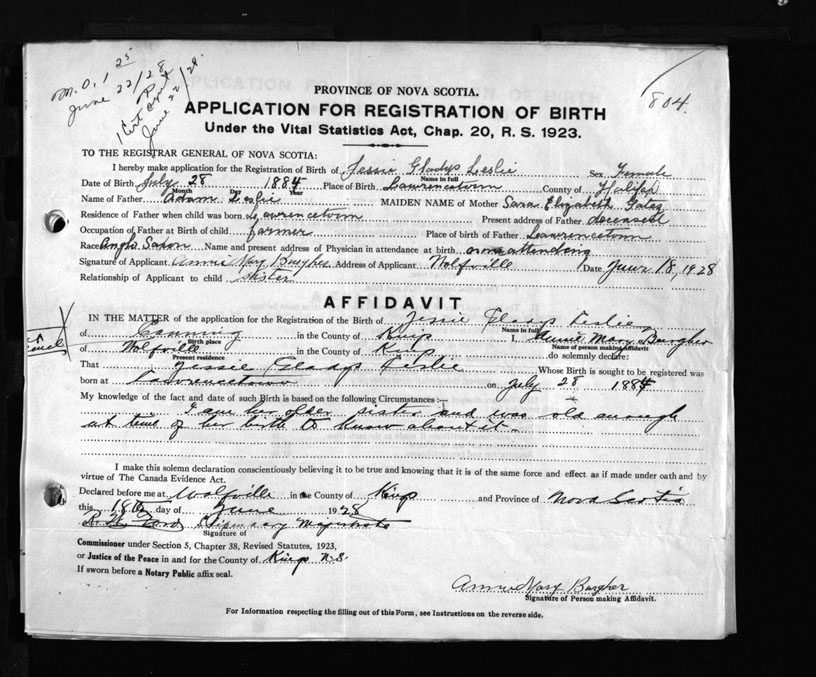 M.O. 1 25
June 22/28
1 Cert
June 22/28.
804.
PROVINCE OF NOVA SCOTIA.
APPLICATION FOR REGISTRATION OF BIRTH
Under the Vital Statistics Act, Chap. 20, R. S. 1923.
TO THE REGISTRAR GENERAL OF NOVA SCOTIA:
I hereby make application for the Registration of Birth of Jessie Gladys Leslie Sex Female
Name in full
Date of Birth July 28 1884 Place of Birth Lawrencetown County of Halifax
Month Day Year
Name of Father Adam Leslie MAIDEN NAME of Mother Sara Elizabeth Gates
Residence of Father when child was born Lawrencetown Present address of Father deceased
Occupation of Father at Birth of child farmer Place of birth of Father Lawrencetown
Race Anglo Saxon Name and present address of Physician in attendance at birth none attending
Signature of Applicant Annie Mary Burgher Address of Applicant Wolfville Date June 18, 1928
Relationship of Applicant to child sister
AFFIDAVIT
IN THE MATTER of the application for the Registration of the Birth of Jessie Gladys Leslie
Name in full
of Canning in the County of Kings I, Annie Mary Burgher
Birth place Name of person making Affidavit
of Wolfville in the County of Kings do solemnly declare:
Present residence
That Jessie Gladys Leslie Whose Birth is sought to be registered was
born at Lawrencetown on July 28 1884
My knowledge of the fact and date of such Birth is based on the following Circumstances:—
I am her older sister and was old enough
at time of her birth to know about it.
I make this solemn declaration conscientiously believing it to be true and knowing that it is of the same force and effect as if made under oath and by
virtue of The Canada Evidence Act.
Declared before me at Wolfville in the County of Kings and Province of Nova Scotia
this 18th day of June 1928
Ford Stipendiary Magistrate
Signature of
Commissioner under Section 5, Chapter 38, Revised Statutes, 1923,
or Justice of the Peace in and for the County of Kings N.S.
If sworn before a Notary Public affix seal.
Annie Mary Burgher
Signature of Person making Affidavit.
For Information respecting the filling out of this Form, see Instructions on the reverse side.